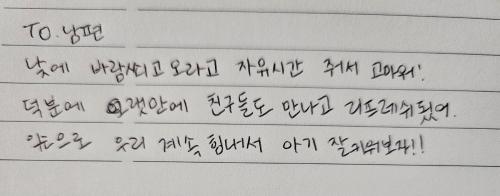 TO. 남편
낮에 바람쐬고 오라고 자유시간 줘서 고마워!
덕분에 오랫만에 친구들도 만나고 리프레쉬됐어.
앞으로 우리 계속 힘내서 아기 잘키워보자!!